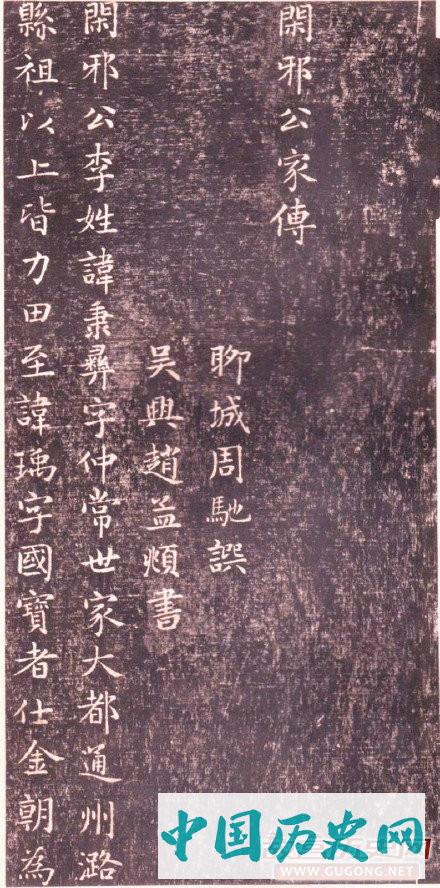 閑邪公家傳
聊城周馳譔
吴興趙孟頫書
閑邪公李姓諱秉彝字仲常世家大都通州潞
縣祖以上皆力田至諱瑀字國寶者仕金朝為
中国历史网
WWW.GUGONG.NET